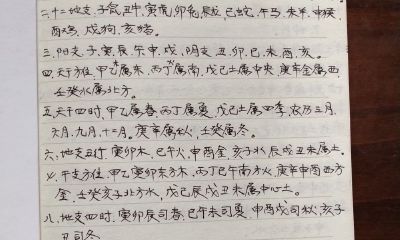 二、十二地支、子鼠、丑牛、寅虎、卯兔、辰龙、巳蛇、午马、未羊、申猴、
酉鸡、戌狗、亥猪。
三、阳支、子、寅、辰、午、申、戌、阴支、丑、卯、巳、未、酉、亥。
四、天干方位、甲乙属东、丙丁属南、戊己土属中央、庚辛金属西、
壬癸水属北方。
五、天干四时、甲乙属春、丙丁属夏、戊己土属四季、农历三月、
六月、九月、十二月。庚辛属秋、壬癸属冬。
六、地支五行、寅卯木、巳午火、申酉金、亥子水、辰戌丑未属土。
七、干支方位、甲乙寅卯东方木、丙丁巳午南方火、庚辛申酉西方
金、壬癸亥子北方水、戊己辰戌丑未属中心土。
八、地支四时、寅卯辰司春、巳午未司夏、申酉戌司秋、亥子
丑司冬